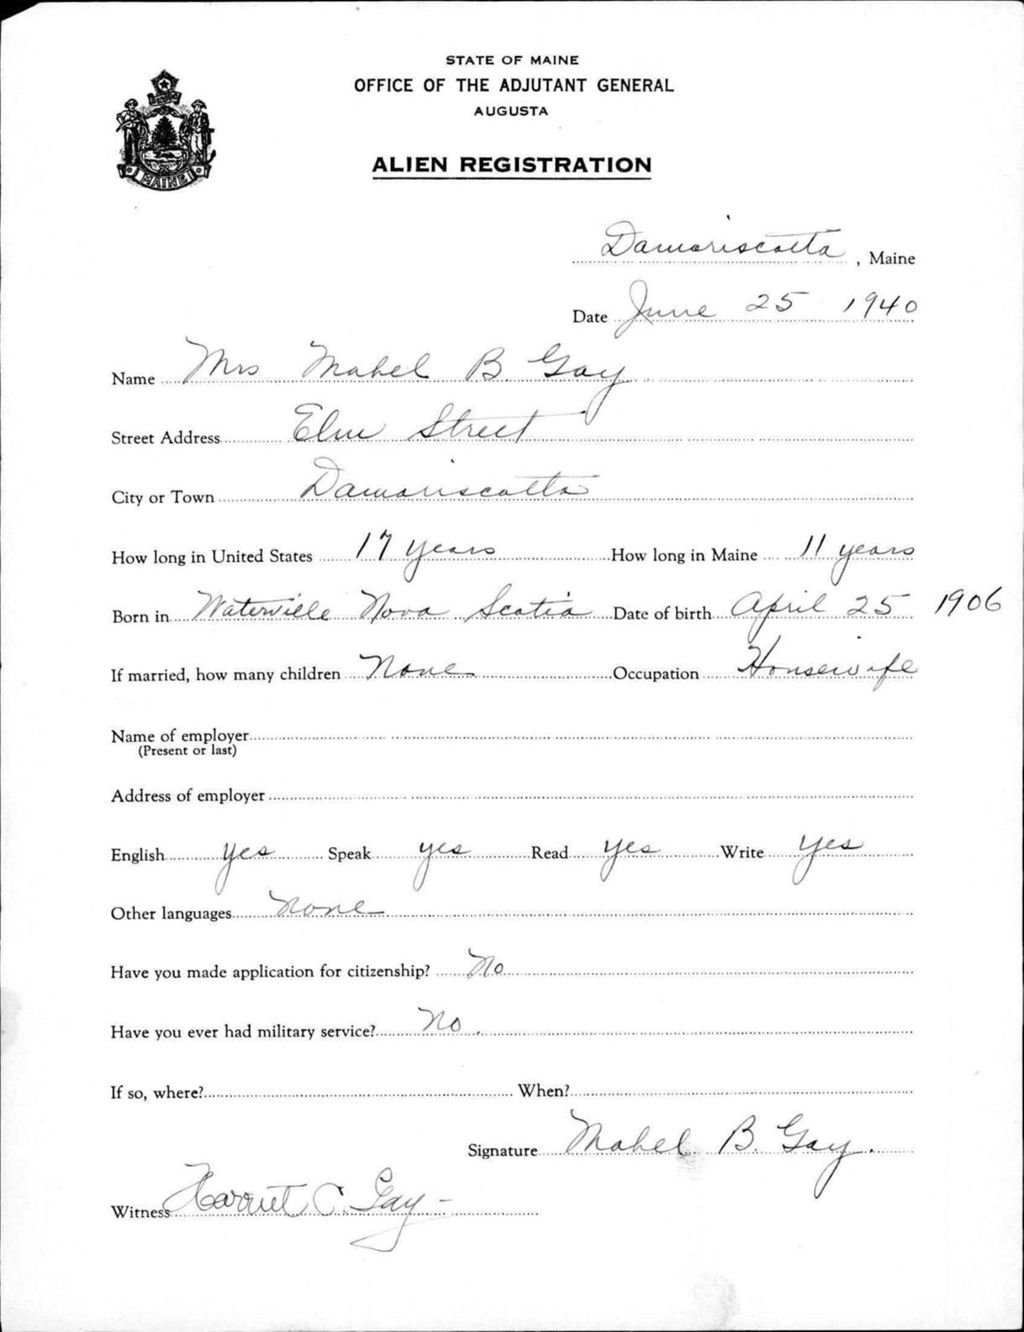 STATE OF MAINE
OFFICE OF THE ADJUTANT GENERAL
AUGUSTA
ALIEN REGISTRATION
MAINE
Damariscotta, Maine
Date June 25 1940
Name Mrs Mabel B. Gay
Street Address Elm Street
City or Town Damariscotta
How long in United States 17 years How long in Maine 11 years
Born in Waterville Nova Scotia Date of birth April 25 1906
If married, how many children None Occupation Housewife
Name of employer
(Present or last)
Address of employer
English yes Speak yes Read yes Write yes
Other languages none
Have you made application for citizenship? No
Have you ever had military service? No.
If so, where? When?
Signature Mabel B. Gay.
Witness Harriet C. Gay -